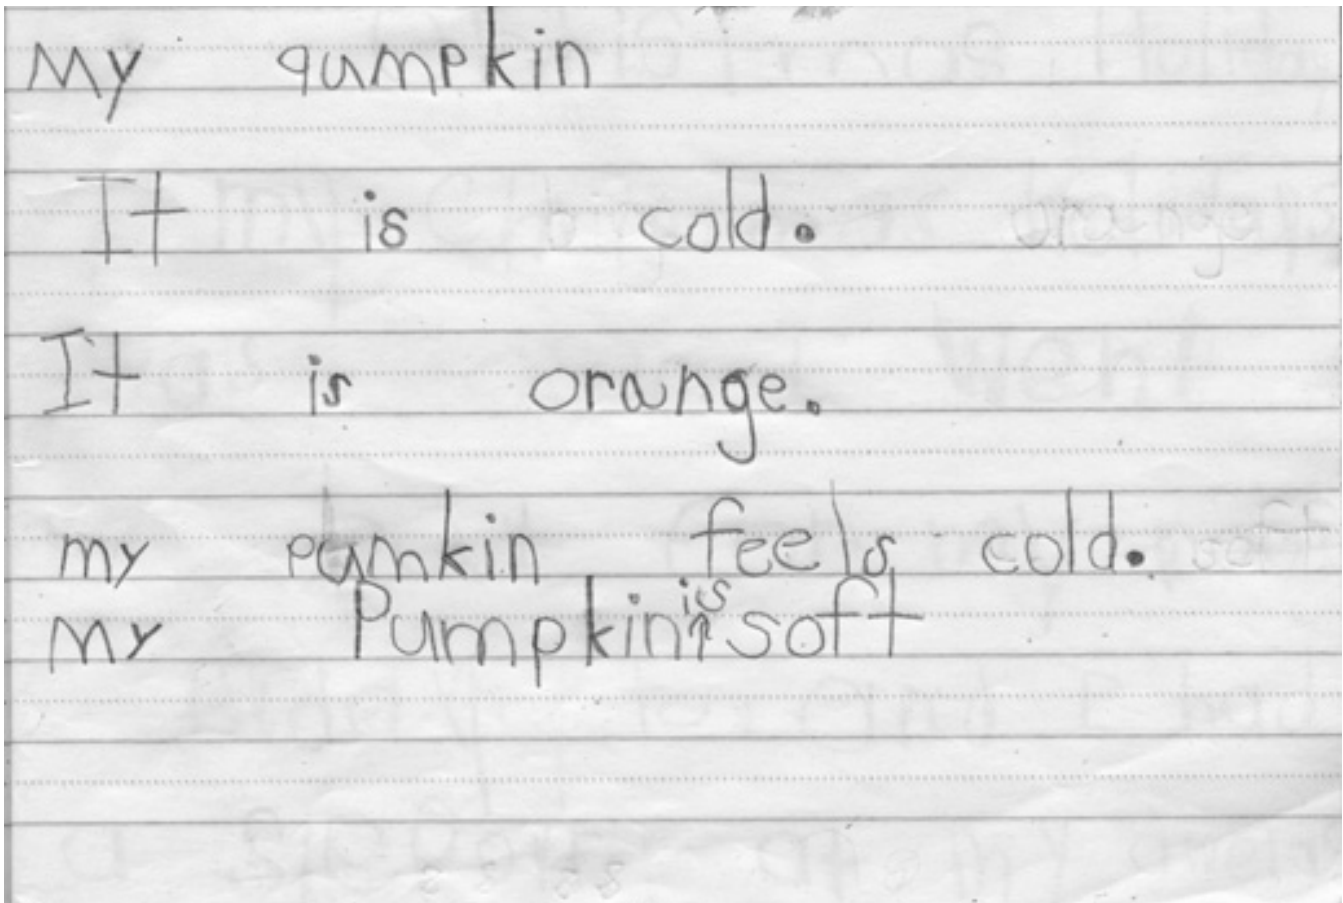 My qumpkin
It is cold.
It is orange.
my pumkin feels cold.
My Pumpkin is soft